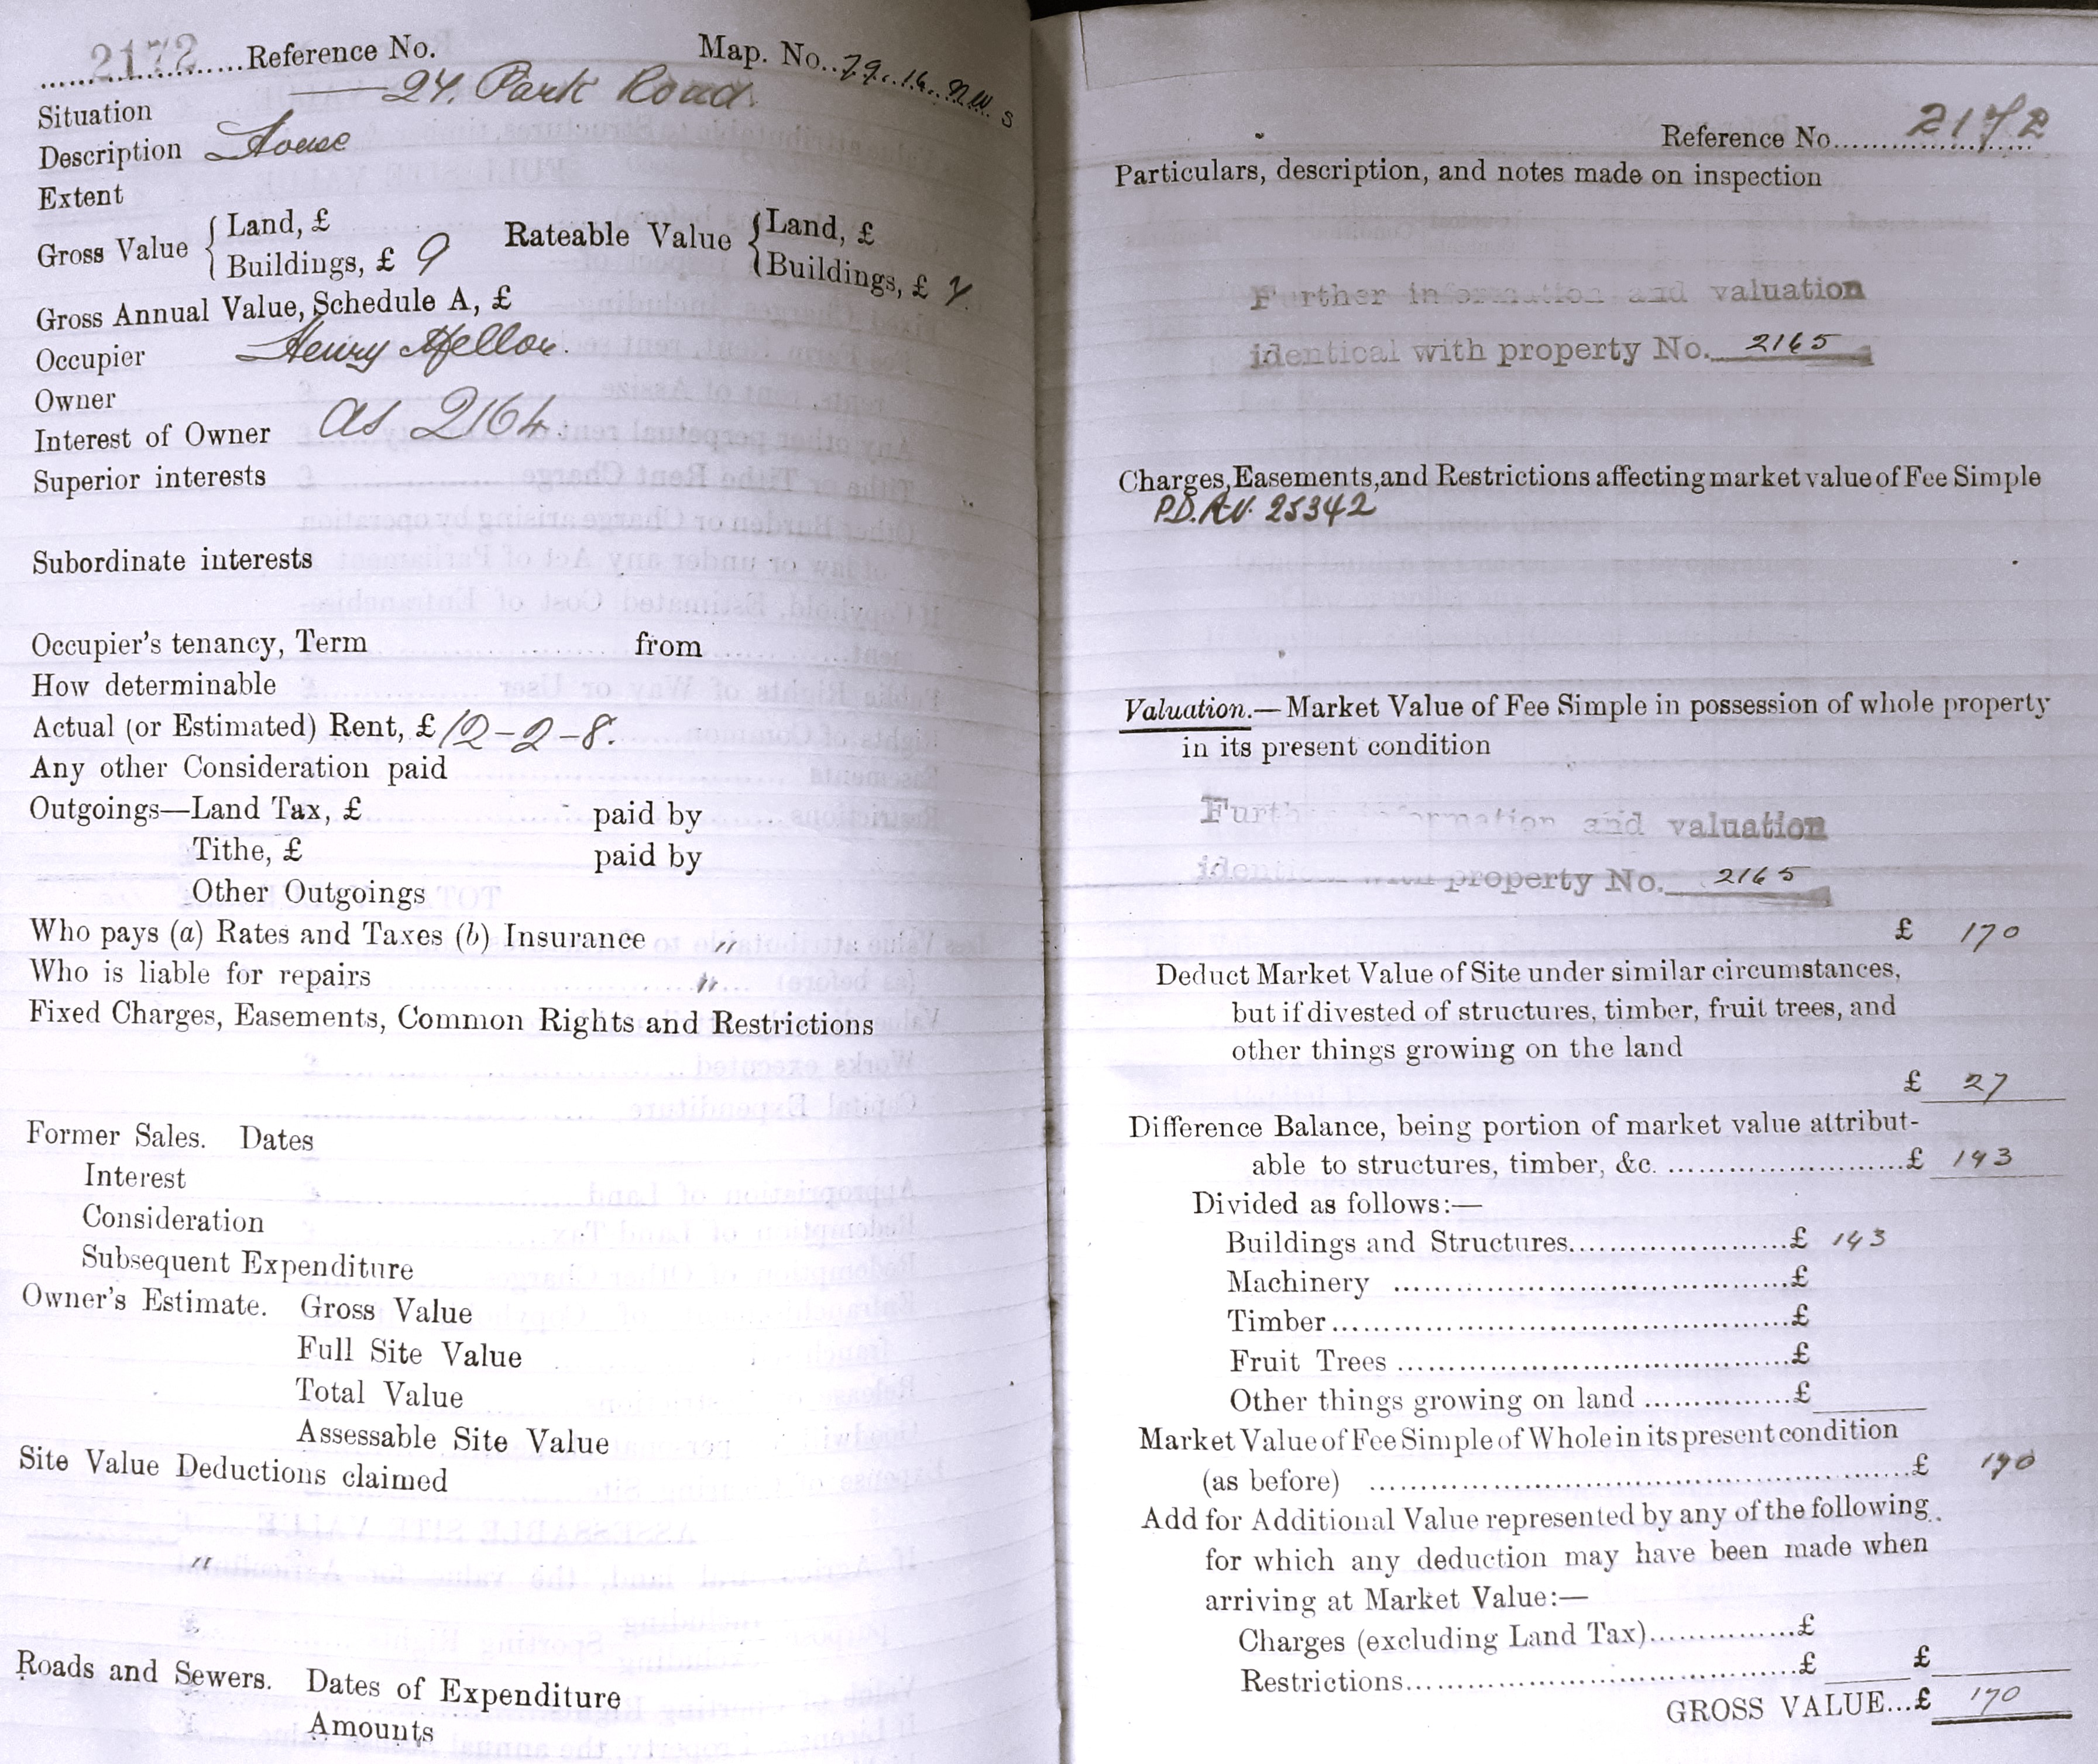 2172 Reference No. Map. No. 79. 16. NW. S
Situation 24. Park Road
Description House
Extent
Gross Value { Land, £ Rateable Value { Land, £
Buildings, £ 9 Buildings, £ 7
Gross Annual Value, Schedule A, £
Occupier Henry Mellor.
Owner
Interest of Owner as 2164.
Superior interests
Subordinate interests
Occupier's tenancy, Term from
How determinable
Actual (or Estimated) Rent, £ 12-2-8.
Any other Consideration paid
Outgoings—Land Tax, £ paid by
Tithe, £ paid by
Other Outgoings
Who pays (a) Rates and Taxes (b) Insurance "
Who is liable for repairs "
Fixed Charges, Easements, Common Rights and Restrictions
Former Sales. Dates
Interest
Consideration
Subsequent Expenditure
Owner's Estimate. Gross Value
Full Site Value
Total Value
Assessable Site Value
Site Value Deductions claimed
"
Roads and Sewers. Dates of Expenditure
Amounts
Reference No. 2172
Particulars, description, and notes made on inspection
Further information and valuation
identical with property No. 2165
Charges, Easements, and Restrictions affecting market value of Fee Simple
P.D. A.V. 25342
Valuation.—Market Value of Fee Simple in possession of whole property
in its present condition
Further information and valuation
identical with property No. 2165
£ 170
Deduct Market Value of Site under similar circumstances,
but if divested of structures, timber, fruit trees, and
other things growing on the land
£ 27
Difference Balance, being portion of market value attribut-
able to structures, timber, &c. £ 143
Divided as follows:—
Buildings and Structures £ 143
Machinery £
Timber £
Fruit Trees £
Other things growing on land £
Market Value of Fee Simple of Whole in its present condition
(as before) £ 170
Add for Additional Value represented by any of the following
for which any deduction may have been made when
arriving at Market Value:—
Charges (excluding Land Tax) £
Restrictions £ £
GROSS VALUE...£ 170